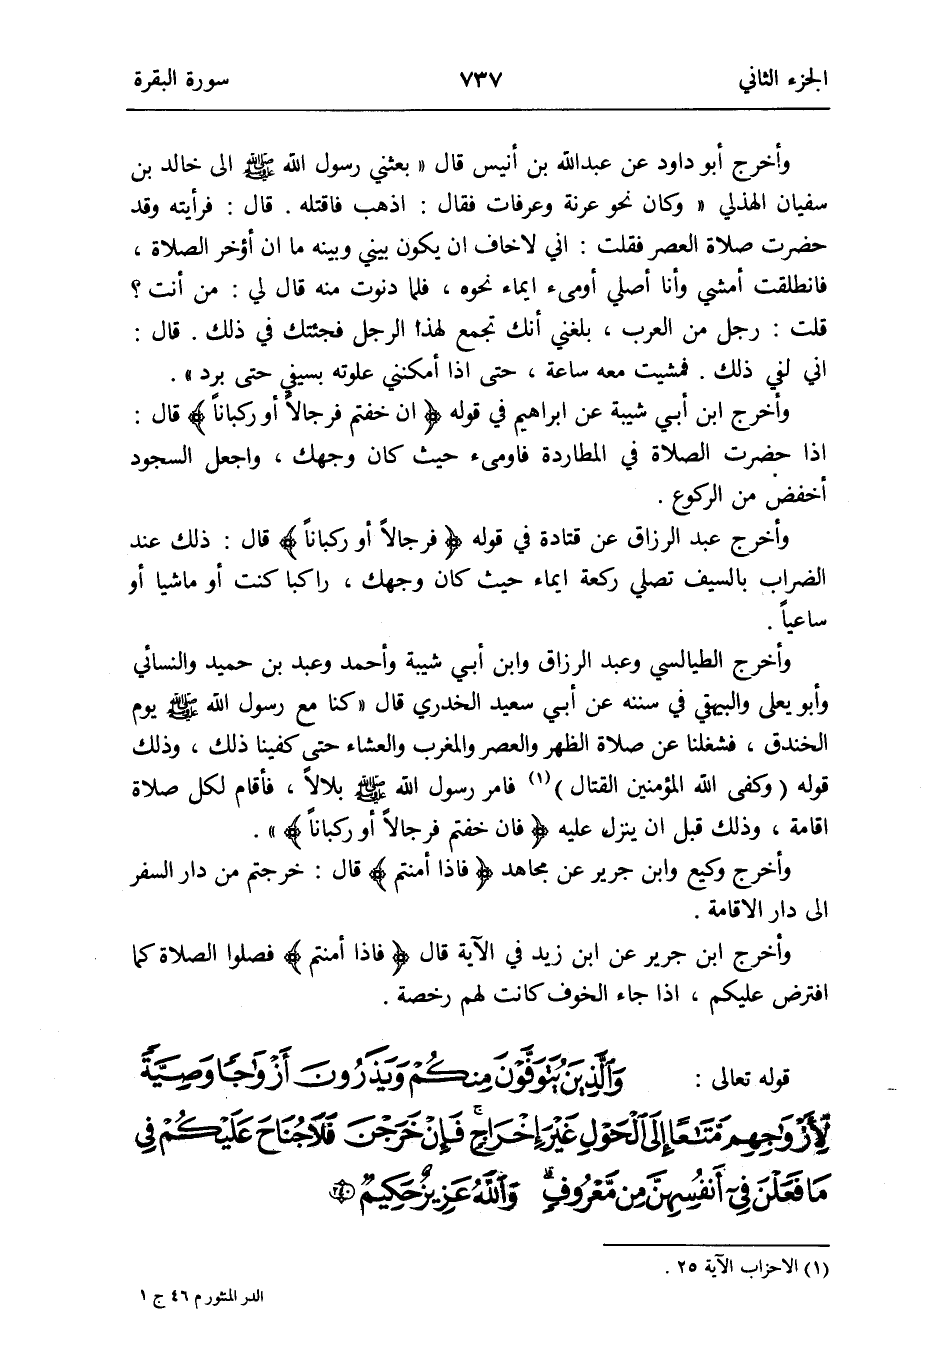 الجزء الثاني ٧٣٧ سورة البقرة
وأخرج أبو داود عن عبدالله بن أنيس قال « بعثني رسول الله ﷺ الى خالد بن
سفيان الهذلي « وكان نحو عرنة وعرفات فقال : اذهب فاقتله . قال : فرأيته وقد
حضرت صلاة العصر فقلت : اني لاخاف ان يكون بيني وبينه ما ان أؤخر الصلاة ،
فانطلقت أمشي وأنا أصلي أومىء ايماء نحوه ، فلما دنوت منه قال لي : من أنت ؟
قلت : رجل من العرب ، بلغني أنك تجمع لهذا الرجل فجئتك في ذلك . قال :
اني لفي ذلك . فمشيت معه ساعة ، حتى اذا أمكنني علوته بسيفي حتى برد » .
وأخرج ابن أبي شيبة عن ابراهيم في قوله ﴿ ان خفتم فرجالاً أو ركباناً ﴾ قال :
اذا حضرت الصلاة في المطاردة فاومىء حيث كان وجهك ، واجعل السجود
أخفض من الركوع .
وأخرج عبد الرزاق عن قتادة في قوله ﴿ فرجالاً أو ركباناً ﴾ قال : ذلك عند
الضراب بالسيف تصلي ركعة ايماء حيث كان وجهك ، راكبا كنت أو ماشيا أو
ساعياً .
وأخرج الطيالسي وعبد الرزاق وابن أبي شيبة وأحمد وعبد بن حميد والنسائي
وأبو يعلى والبيهقي في سننه عن أبي سعيد الخدري قال « كنا مع رسول الله ﷺ يوم
الخندق ، فشغلنا عن صلاة الظهر والعصر والمغرب والعشاء حتى كفينا ذلك ، وذلك
قوله ( وكفى الله المؤمنين القتال )(١) فامر رسول الله ﷺ بلالاً ، فأقام لكل صلاة
اقامة ، وذلك قبل ان ينزل عليه ﴿ فان خفتم فرجالاً أو ركباناً ﴾ » .
وأخرج وكيع وابن جرير عن مجاهد ﴿ فاذا أمنتم ﴾ قال : خرجتم من دار السفر
الى دار الاقامة .
وأخرج ابن جرير عن ابن زيد في الآية قال ﴿ فاذا أمنتم ﴾ فصلوا الصلاة كما
افترض عليكم ، اذا جاء الخوف كانت لهم رخصة .
قوله تعالى : وَٱلَّذِينَ يُتَوَفَّوْنَ مِنكُمْ وَيَذَرُونَ أَزْوَٰجًا وَصِيَّةً
لِّأَزْوَٰجِهِم مَّتَـٰعًا إِلَى ٱلْحَوْلِ غَيْرَ إِخْرَاجٍ ۚ فَإِنْ خَرَجْنَ فَلَا جُنَاحَ عَلَيْكُمْ فِى
مَا فَعَلْنَ فِىٓ أَنفُسِهِنَّ مِن مَّعْرُوفٍ ۗ وَٱللَّهُ عَزِيزٌ حَكِيمٌ ٢٤٠
(١) الاحزاب الآية ٢٥ .
الدر المنثور م ٤٦ ج ١